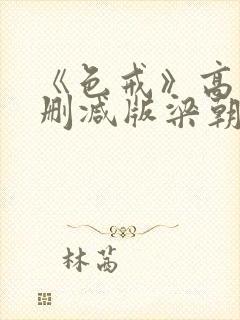 《色戒》高
删减版梁朝
林茜